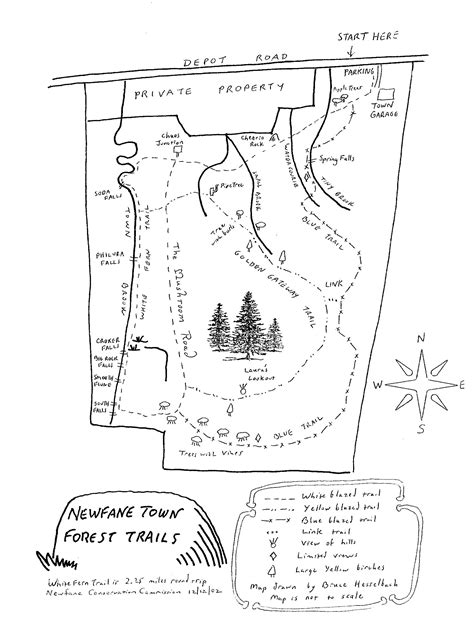 START HERE
DEPOT ROAD
PARKING
PRIVATE PROPERTY
Apple Trees
TOWN GARAGE
Chaos Junction
Cheerio Rock
WATER COURSE
Spring Falls
TINY BROOK
SODA FALLS
Pine Tree
SMALL BROOK
BLUE TRAIL
TOWN BROOK
WHITE FERN TRAIL
The Mushroom Road
GOLDEN GATEWAY TRAIL
PHILURA FALLS
LINK
CROKER FALLS
BIG ROCK FALLS
SMOOTH FLUME
SOUTH FALLS
Laura's Lookout
BLUE TRAIL
Trees with Vines
N
W
E
S
NEWFANE TOWN
FOREST TRAILS
White Fern Trail is 2.25 miles round trip
Newfane Conservation Commission 12/12/02
White blazed trail
Yellow blazed trail
Blue blazed trail
Link trail
View of hills
Limited views
Large Yellow birches
Map drawn by Bruce Hesselbach
Map is not to scale